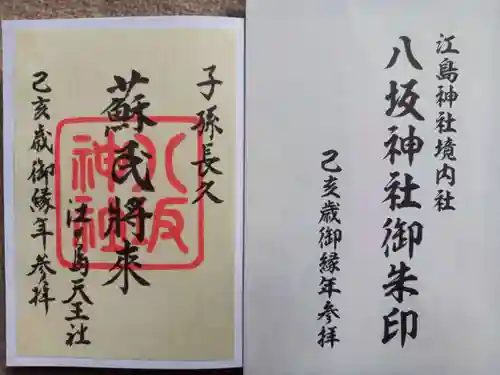 江島神社境内社
八坂神社御朱印
己亥歳御縁年参拝
子孫長久
蘇民將来
江ノ島天王社
己亥歳御縁年参拝
八坂
神社